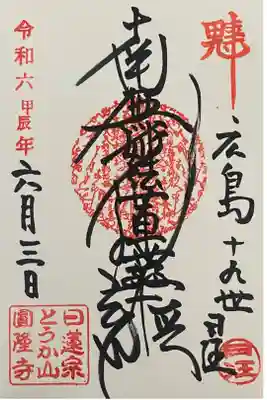 広島 十九世
南無妙法蓮華経
令和六甲辰年
六月三日
日蓮宗
とうか山
圓隆寺